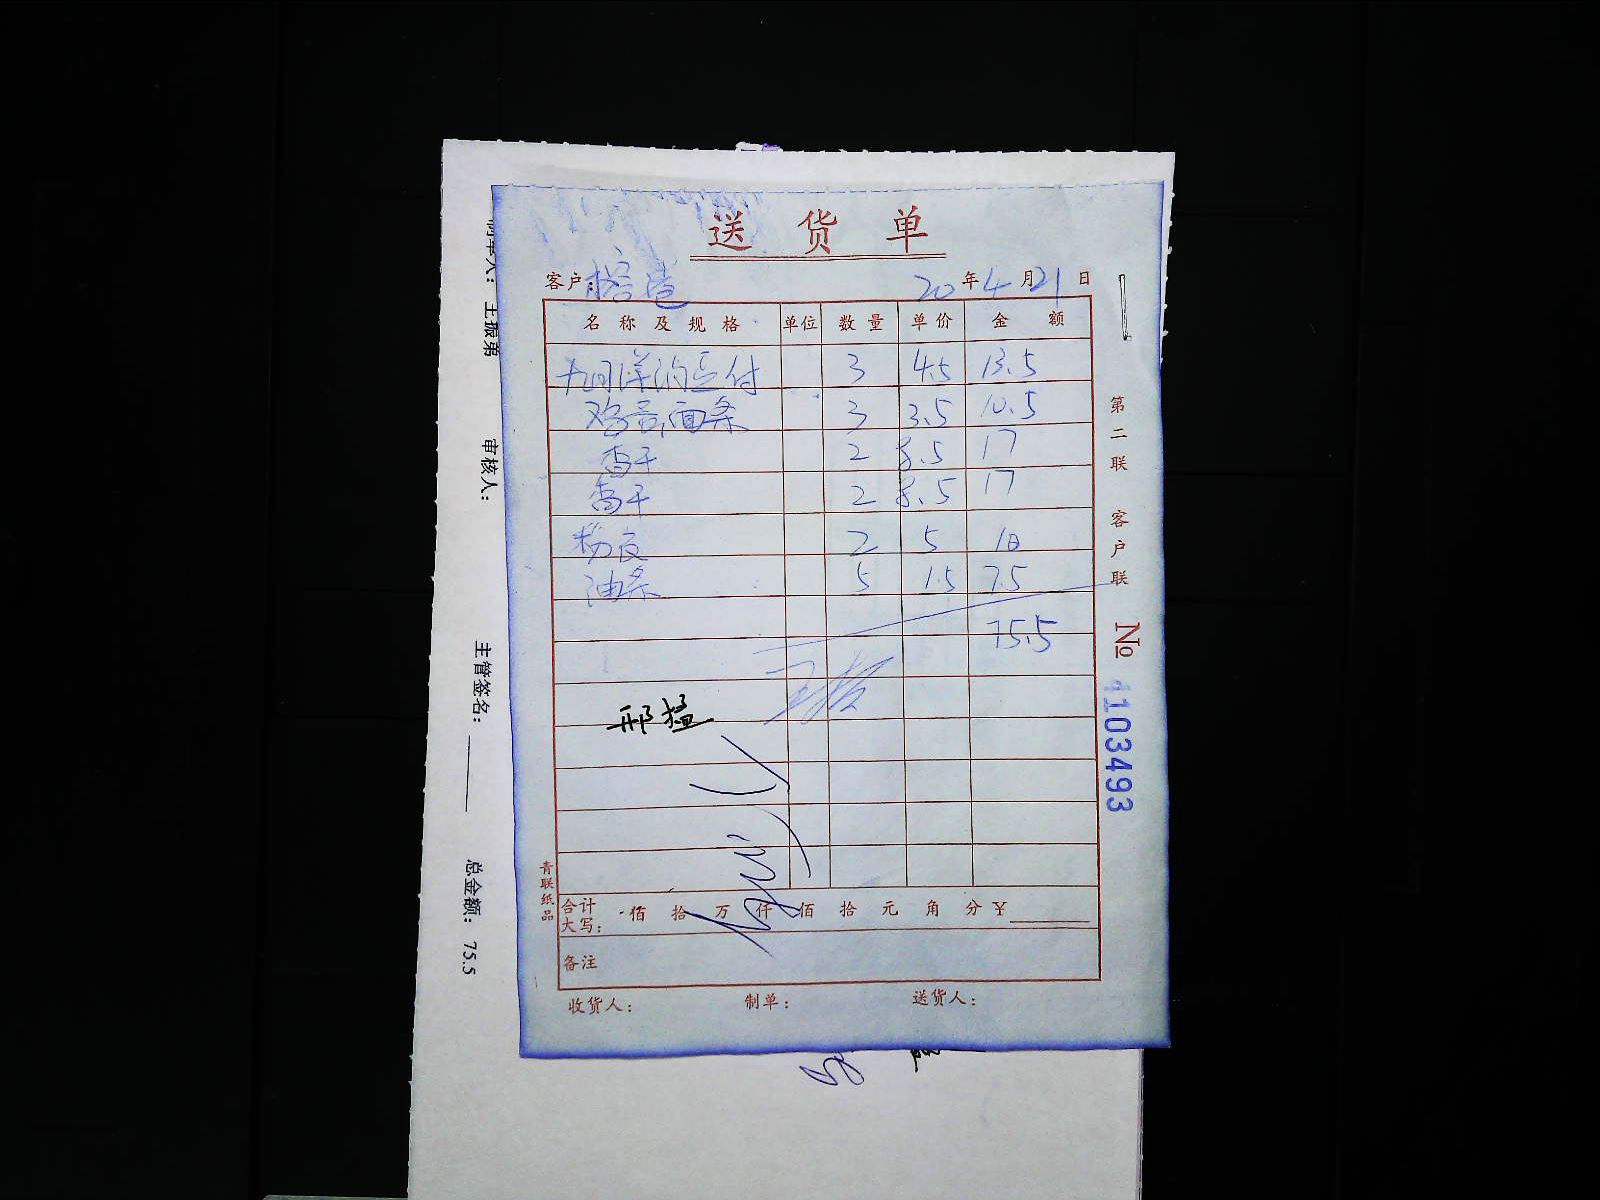 送货单
客户: 榕巷 20年4月21日
名称及规格 单位 数量 单价 金额
3 4.5 13.5
鸡蛋面条 3 3.5 10.5
香干 2 8.5 17
香干 2 8.5 17
粉皮 2 5 10
油条 5 1.5 7.5
75.5
邢猛
合计大写: 佰 拾 万 仟 佰 拾 元 角 分 ¥
备注
收货人: 制单: 送货人:
青联纸品
第二联 客户联
No 4103493
制单人: 王振弟 审核人: 主管签名: 总金额: 75.5